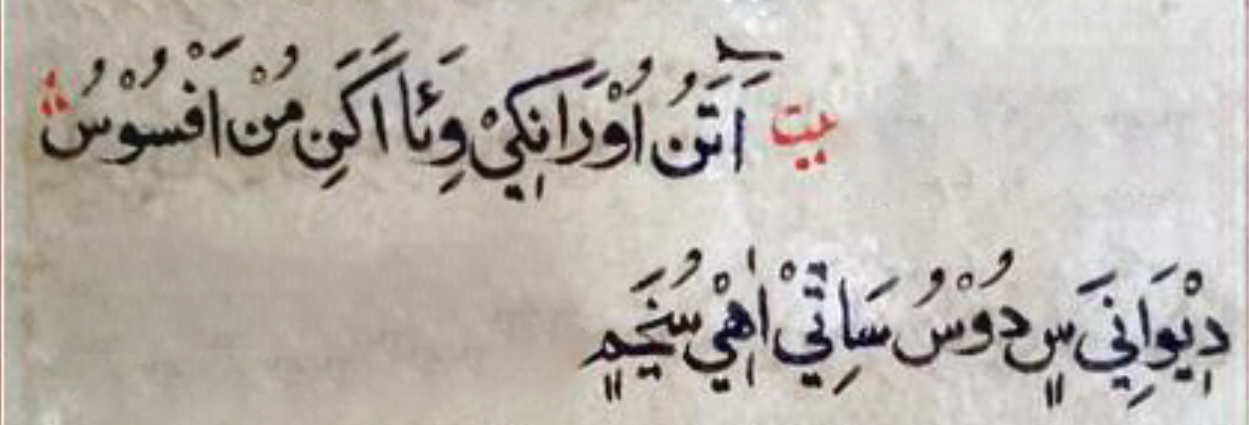 بيت اَتَنُ اُوْرَانِكِيْ وِئَا اَكَنِ مُنْ اَفْسُوْسُ
دِيْوَانِيَ سٍ دُوْسُ سَاتِيْ اِهِيْ سُنَجيمٍ